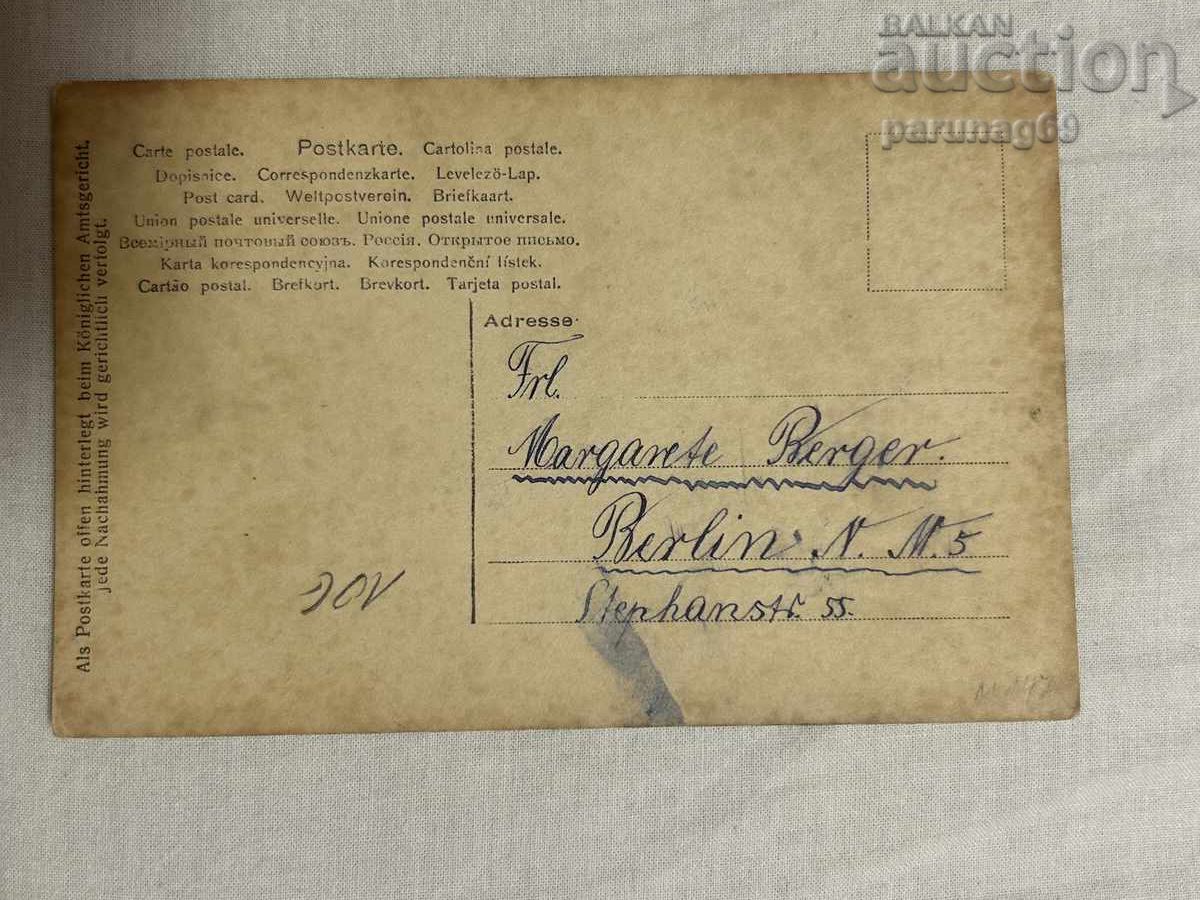 BALKAN
auction
parunag69
Carte postale. Postkarte. Cartolina postale.
Dopisnice. Correspondenzkarte. Levelező-Lap.
Post card. Weltpostverein. Briefkaart.
Union postale universelle. Unione postale universale.
Всемірный почтовый союзъ. Россія. Открытое письмо.
Karta korespondencyjna. Korespondenční lístek.
Cartão postal. Brefkort. Brevkort. Tarjeta postal.
Als Postkarte offen hinterlegt beim Königlichen Amtsgericht.
jede Nachahmung wird gerichtlich verfolgt.
Adresse
Frl.
Margarete Berger.
Berlin N. W. 5
Stephanstr. 55.